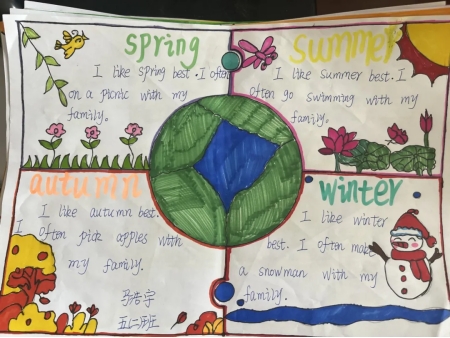 spring
I like spring best. I often
on a picnic with my
family。
summer
I like Summer best. I
often go swimming with my
family。
autumn
I like autumn best.
I often pick apples with
my family.
五(二)班
winter
I like winter
best. I often make
a snowman with my
family.